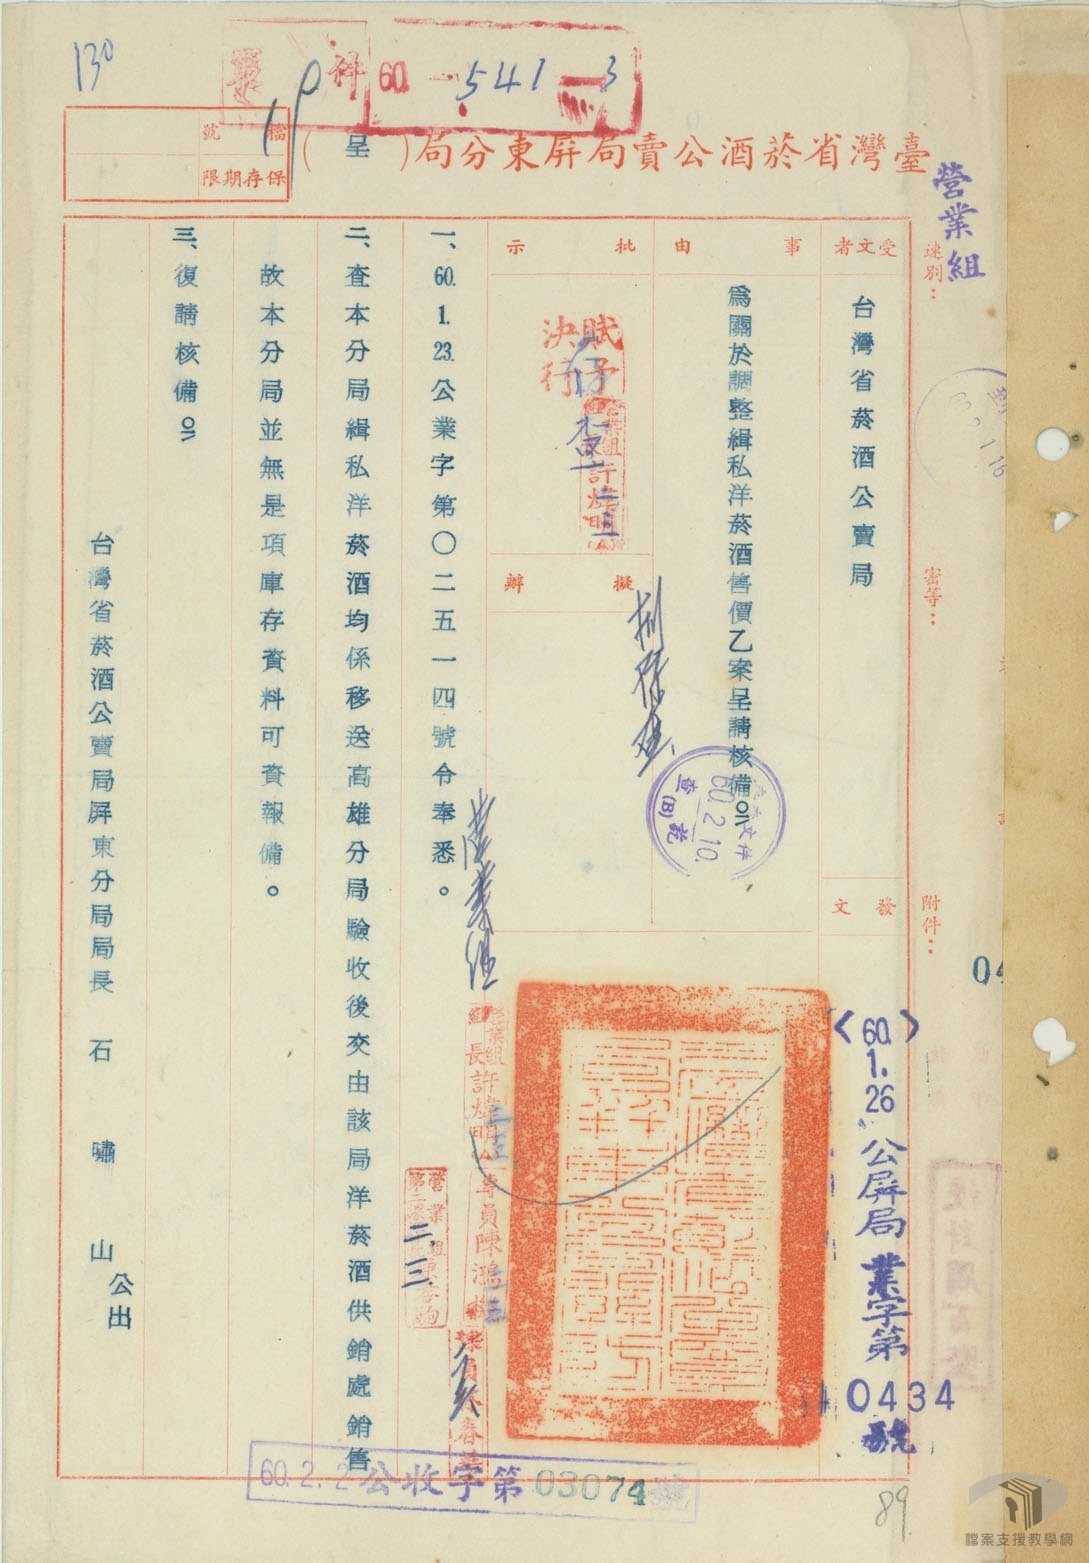 130
60. 541 3
檔號
保存期限
臺灣省菸酒公賣局屏東分局（呈）
營業組
速別：
密等：
附件：
受文者
台灣省菸酒公賣局
發文
〈60.1.26公屏局業字第
10434
號
事由
為關於調整緝私洋菸酒售價乙案呈請核備。
60.2.10.
批示
賦予
決行
擬辦
一、60.1.23.公業字第〇二五一四號令奉悉。
二、查本分局緝私洋菸酒均係移送高雄分局驗收後交由該局洋菸酒供銷處銷售
故本分局並無是項庫存資料可資報備。
三、復請核備。
台灣省菸酒公賣局屏東分局局長 石嘯山公出
營業組
二、三
60.2.2公收字第03074號
89
檔案支援教學網